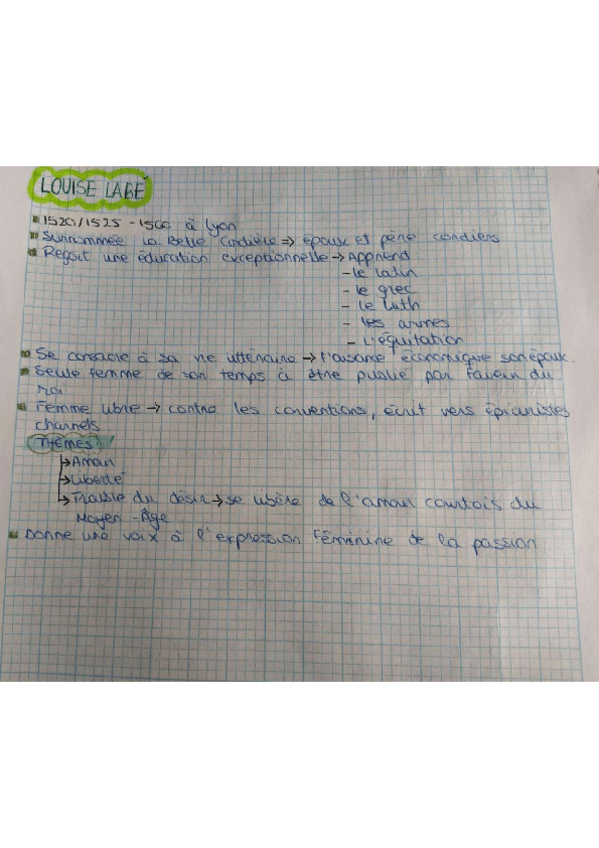 LOUISE LABÉ
1520/1525 - 1566 à Lyon
Surnommée La Belle Cordière => époux et père cordiers
Reçoit une éducation exceptionnelle → Apprend
- le latin
- le grec
- le luth
- les armes
- L'équitation
Se consacre à sa vie littéraire → l'aisance économique son époux
Seule femme de son temps à être publié par faveur du
roi
Femme libre → contre les conventions, écrit vers épicuristes
charnels
THÈMES:
↳ Amour
↳ Liberté
↳ Trouble du désir → se libère de l'amour courtois du
Moyen-Âge
Donne une voix à l'expression féminine de la passion